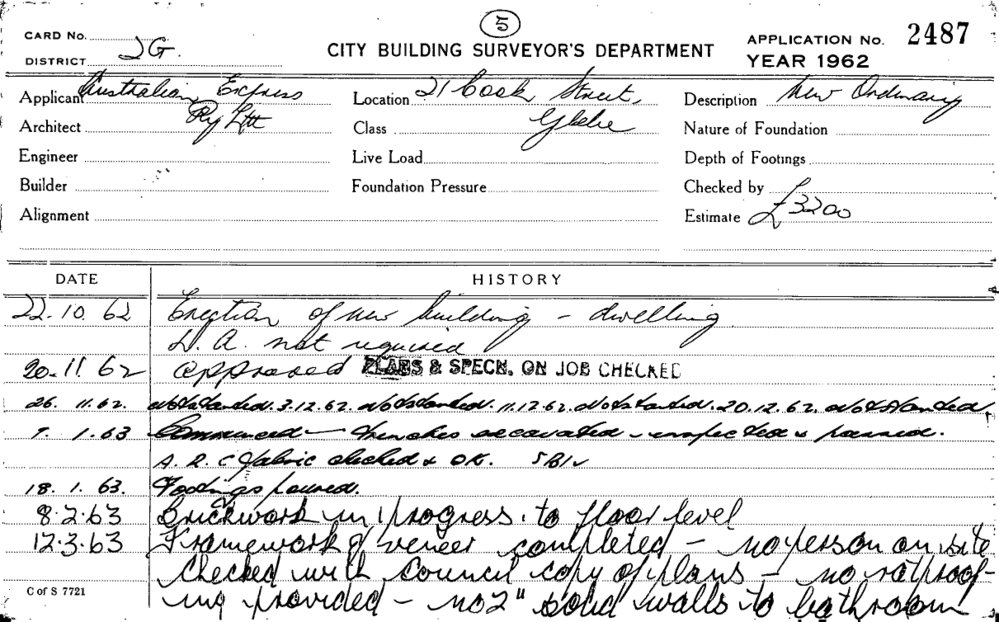 5
CARD No. 2G. CITY BUILDING SURVEYOR'S DEPARTMENT APPLICATION No. 2487
DISTRICT YEAR 1962
Applicant Australian Express Location 21 Cook Street, Description New Ordinary
Architect Pty Ltd Class Glebe Nature of Foundation
Engineer Live Load Depth of Footings
Builder Foundation Pressure Checked by
Alignment Estimate £3200
DATE HISTORY
22.10.62 Erection of new building - dwelling
D.A. not required
20.11.62 approved PLANS & SPECN. ON JOB CHECKED
26.11.62. Not started. 3.12.62. Not started. 11.12.62. Not started. 20.12.62. Not started
7.1.63 Commenced - trenches excavated - inspected & passed.
A.R.C fabric checked & OK.
18.1.63. Footings poured.
8.2.63 Brickwork in progress. to floor level
12.3.63 Framework of veneer completed - no person on site
checked with Council copy of plans - no ratproof-
C of S 7721 ing provided - no 2" solid walls to bathroom